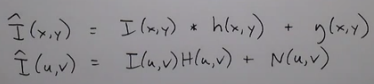 Î(x,y) = I(x,y) * h(x,y) + η(x,y)
Î(u,v) = I(u,v)H(u,v) + N(u,v)